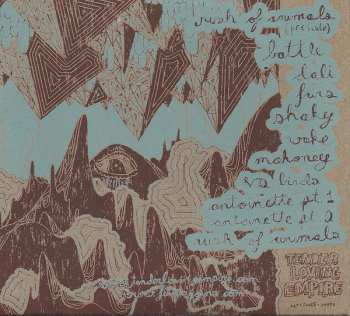 rush of animals
(prelude)
battle
lali
furs
shaky
wake
mahoney
birds
antoinette pt. 1
antoinette pt. 2
rush of animals
TENDER
LOVING
EMPIRE